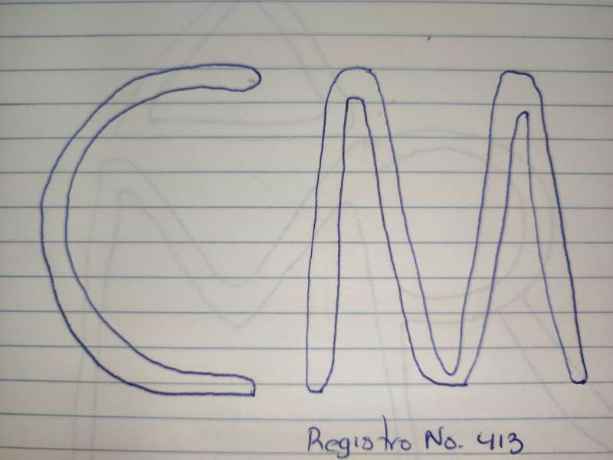 CM
Registro No. 413